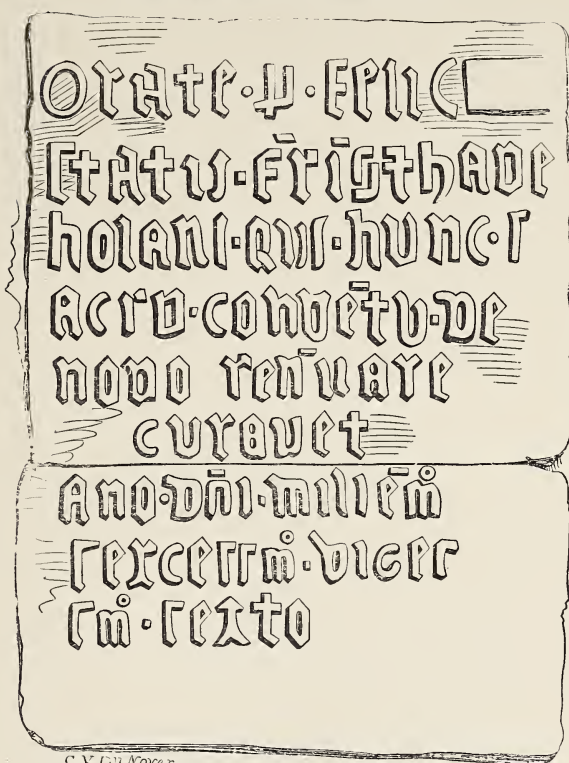 Orate · p · Felic
statu · Fr̄īs thade
holani · qui · hunc · s
acro · convētu · de
novo ren̄uare
curauet
Ano · Dn̄i · millēm̊
sexcessm̊ · viges
sm̊ · sexto